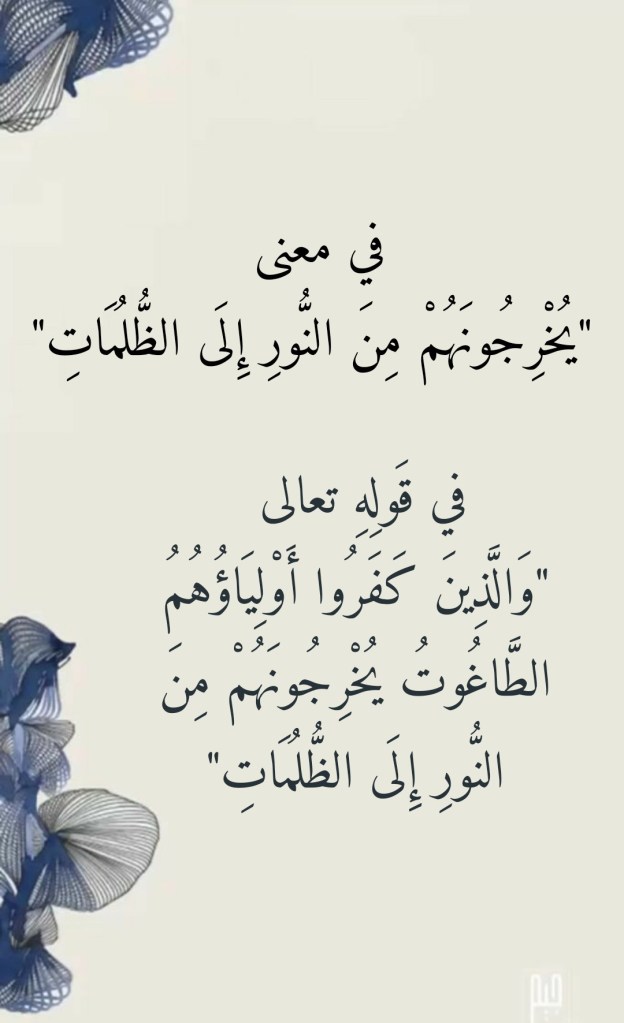 في معنى
"يُخْرِجُونَهُمْ مِنَ النُّورِ إِلَى الظُّلُمَاتِ"
في قَولِهِ تعالى
"وَالَّذِينَ كَفَرُوا أَوْلِيَاؤُهُمُ
الطَّاغُوتُ يُخْرِجُونَهُمْ مِنَ
النُّورِ إِلَى الظُّلُمَاتِ"